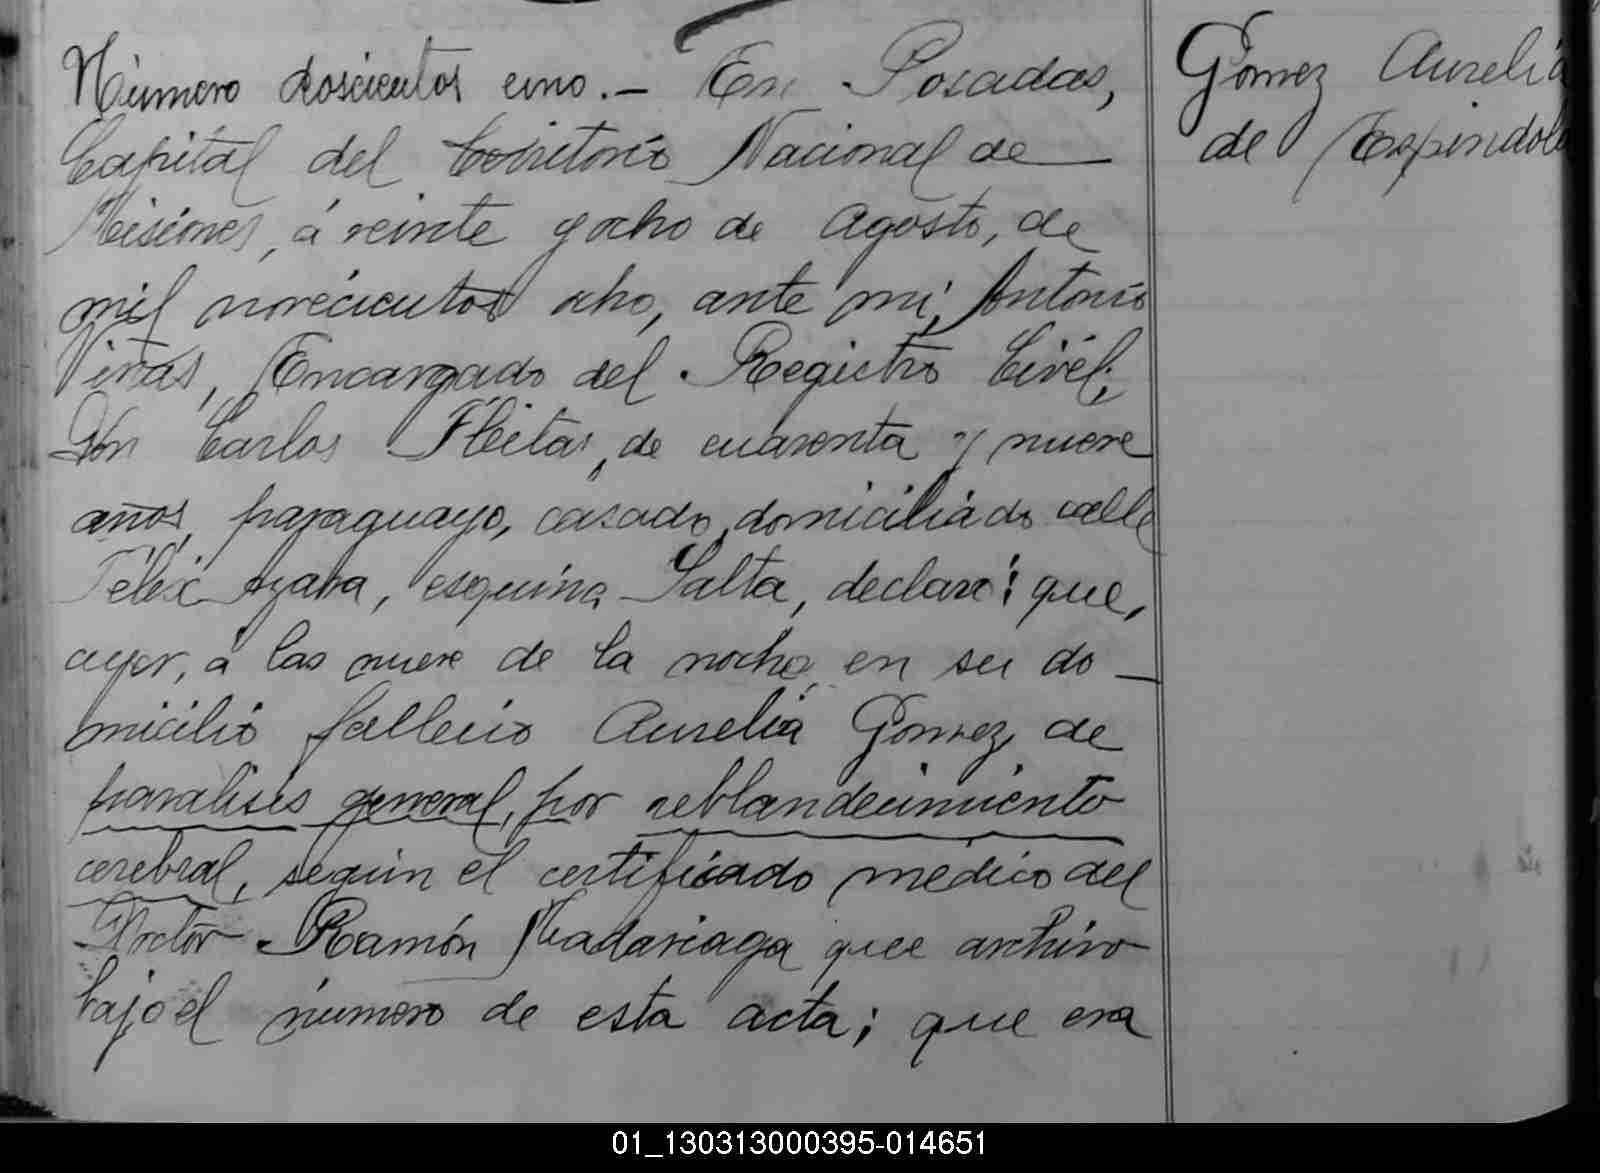 Número doscientos uno.- En Posadas,
Capital del territorio Nacional de
Misiones, á veinte y ocho de Agosto, de
mil novecientos ocho, ante mi, Antonio
Viñas, Encargado del Registro Civil;
Don Carlos Fleitas, de cuarenta y nueve
años, paraguayo, casado, domiciliado calle
Félix Azara, esquina Salta, declaró: que,
ayer, á las nueve de la noche, en su do-
micilio falleció Aurelia Gómez, de
paralisis general, por reblandecimiento
cerebral, según el certificado médico del
Doctor Ramón Madariaga que archivo
bajo el número de esta acta; que era
Gómez Aurelia
de Espindola
01_130313000395-014651